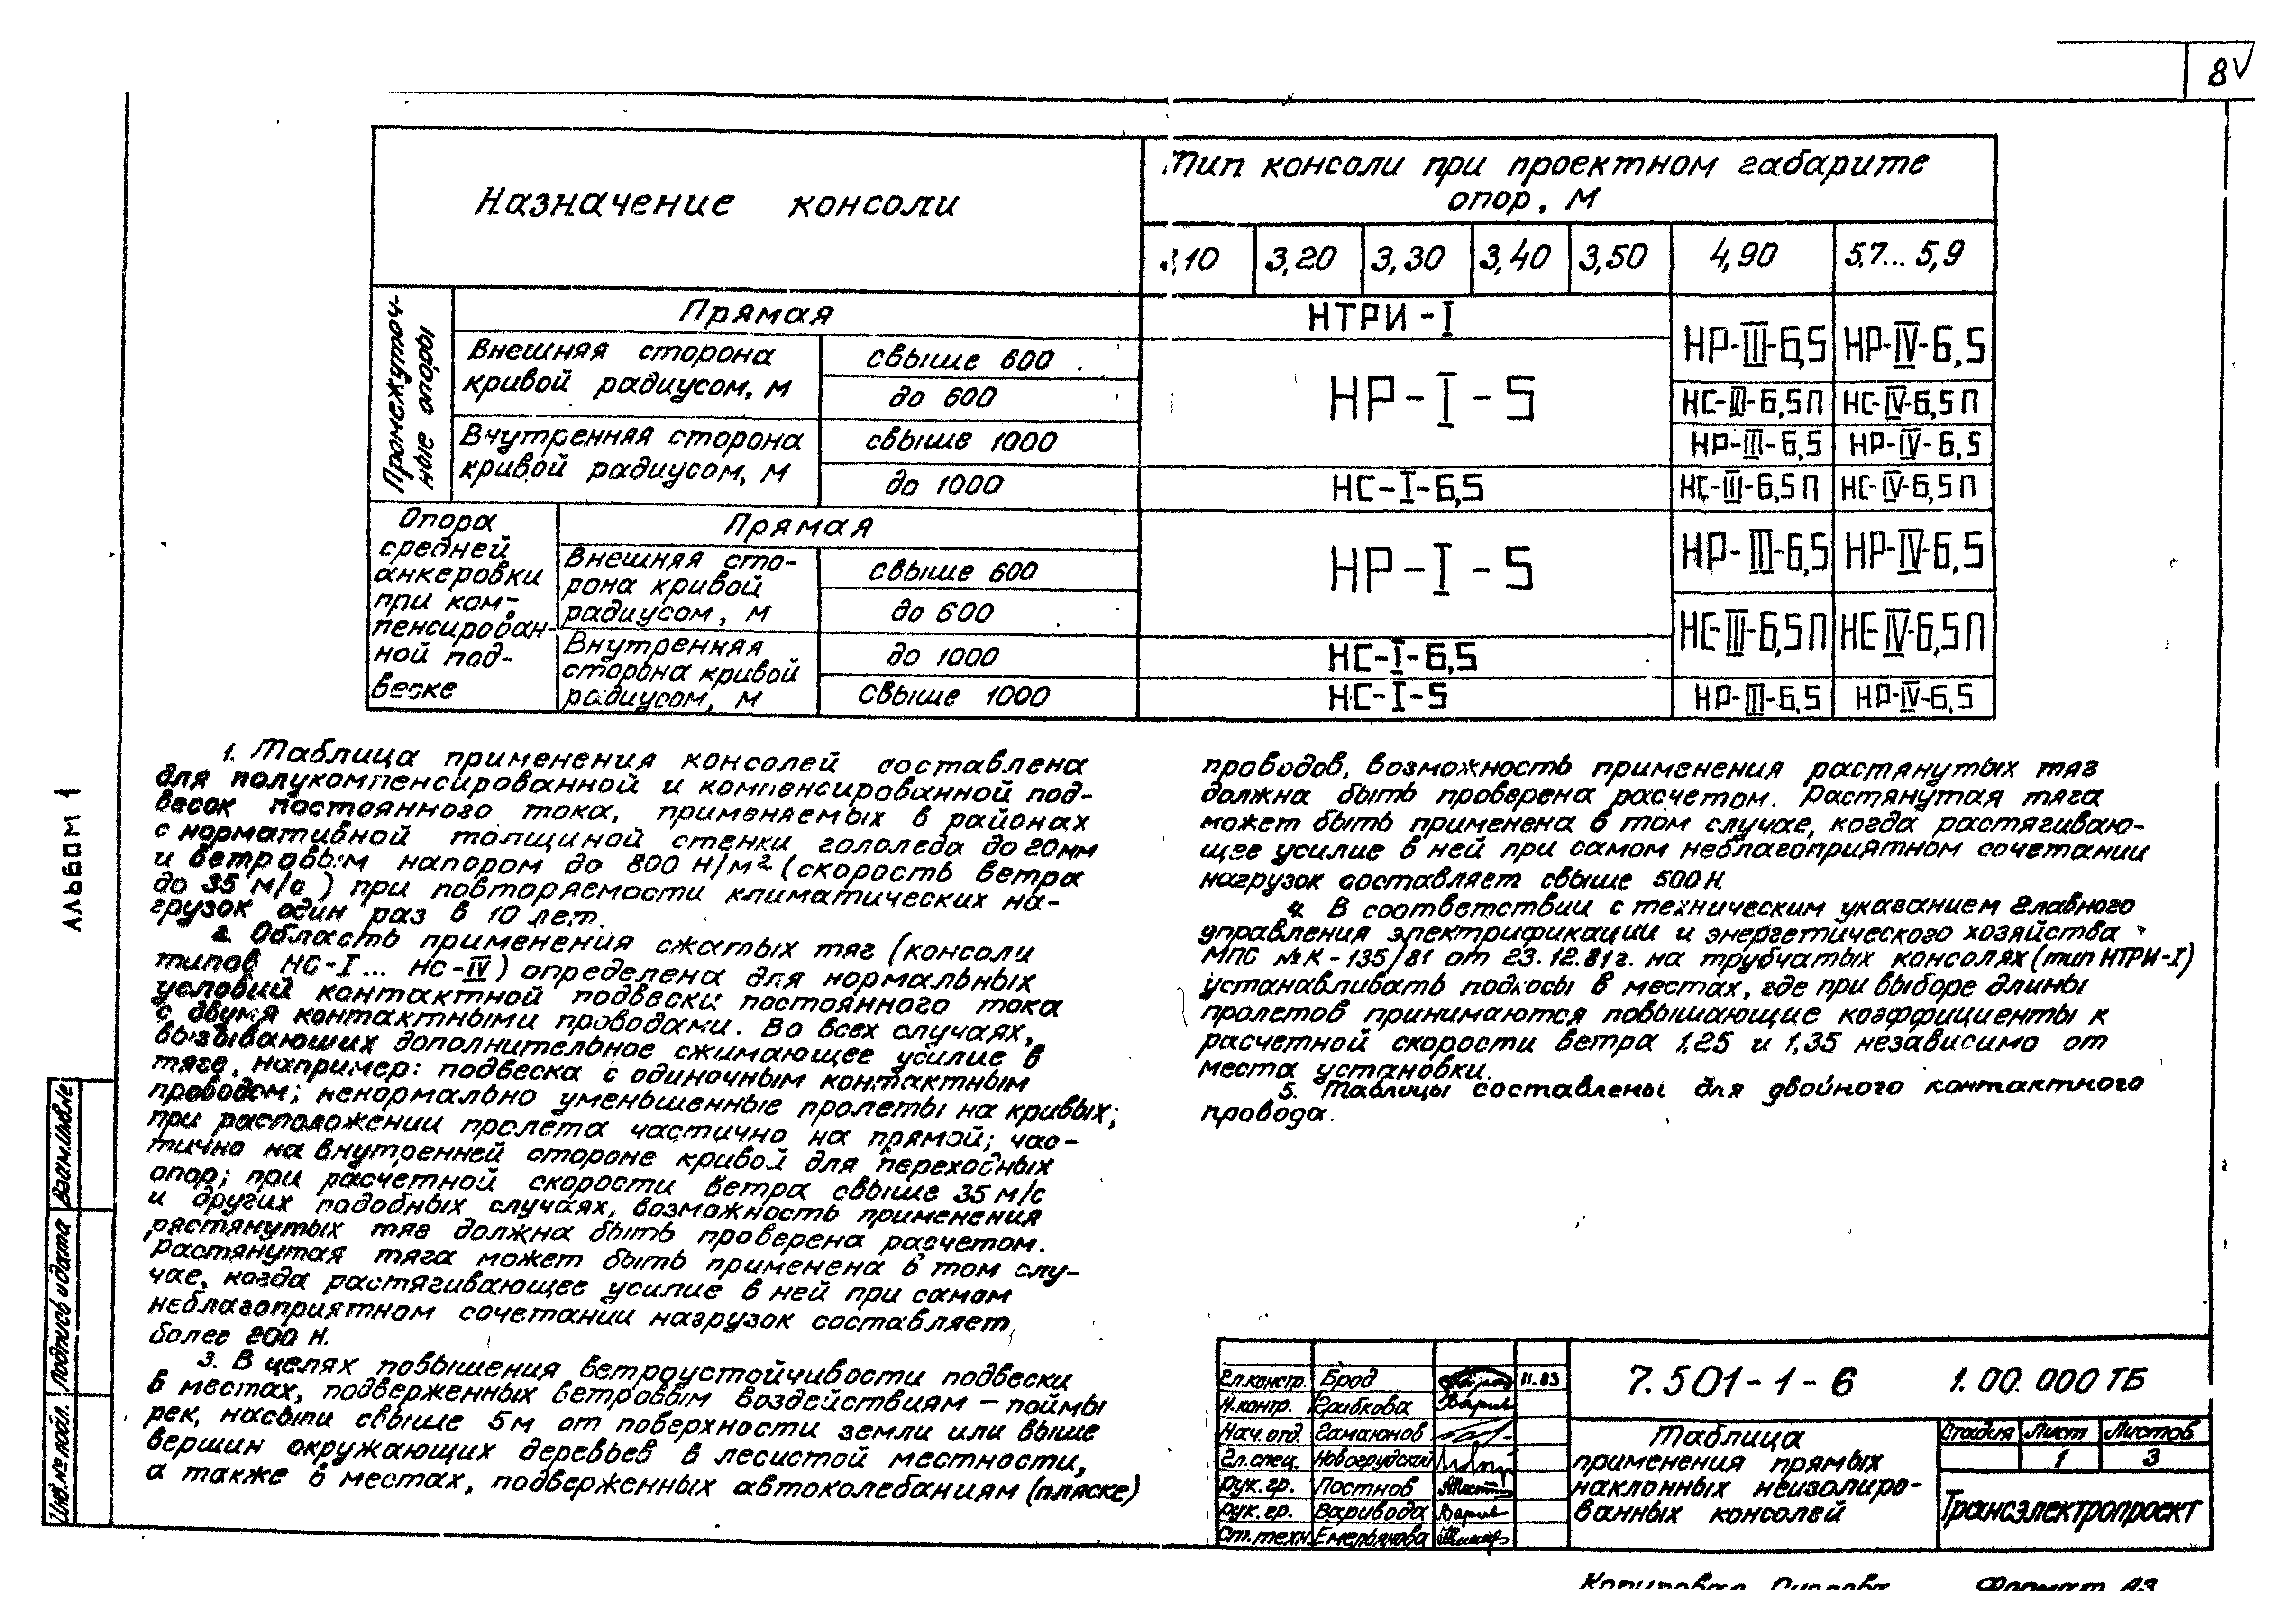 8
Назначение консоли
Тип консоли при проектном габарите
опор, м
,10 3,20 3,30 3,40 3,50 4,90 5,7... 5,9
Промежуточ-
ные опоры
Прямая
НТРИ-I
НР-III-6,5 НР-IV-6,5
Внешняя сторона
кривой радиусом, м
свыше 600
до 600
НР-I-5
НС-III-6,5П НС-IV-6,5П
Внутренняя сторона
кривой радиусом, м
свыше 1000
НР-III-6,5 НР-IV-6,5
до 1000
НС-I-6,5
НС-III-6,5П НС-IV-6,5П
Опора
средней
анкеровки
при ком-
пенсирован-
ной под-
веске
Прямая
НР-I-5
НР-III-6,5 НР-IV-6,5
Внешняя сто-
рона кривой
радиусом, м
свыше 600
до 600
НС-III-6,5П НС-IV-6,5П
Внутренняя
сторона кривой
радиусом, м
до 1000
НС-I-6,5
свыше 1000
НС-I-5
НР-III-6,5 НР-IV-6,5
1. Таблица применения консолей составлена
для полукомпенсированной и компенсированной под-
весок постоянного тока, применяемых в районах
с нормативной толщиной стенки гололеда до 20мм
и ветровым напором до 800 Н/м² (скорость ветра
до 35 м/с) при повторяемости климатических на-
грузок один раз в 10 лет.
2. Область применения сжатых тяг (консоли
типов НС-I... НС-IV) определена для нормальных
условий контактной подвески постоянного тока
с двумя контактными проводами. Во всех случаях,
вызывающих дополнительное сжимающее усилие в
тяге, например: подвеска с одиночным контактным
проводом; ненормально уменьшенные пролеты на кривых;
при расположении пролета частично на прямой; час-
тично на внутренней стороне кривой для переходных
опор; при расчетной скорости ветра свыше 35 м/с
и других подобных случаях, возможность применения
растянутых тяг должна быть проверена расчетом.
Растянутая тяга может быть применена в том слу-
чае, когда растягивающее усилие в ней при самом
неблагоприятном сочетании нагрузок составляет
более 200 Н.
3. В целях повышения ветроустойчивости подвески
в местах, подверженных ветровым воздействиям - поймы
рек, насыпи свыше 5м от поверхности земли или выше
вершин окружающих деревьев в лесистой местности,
а также в местах, подверженных автоколебаниям (пляске)
проводов, возможность применения растянутых тяг
должна быть проверена расчетом. Растянутая тяга
может быть применена в том случае, когда растягиваю-
щее усилие в ней при самом неблагоприятном сочетании
нагрузок составляет свыше 500 Н.
4. В соответствии с техническим указанием Главного
управления электрификации и энергетического хозяйства
МПС №К-135/81 от 23.12.81г. на трубчатых консолях (тип НТРИ-I)
устанавливать подкосы в местах, где при выборе длины
пролетов принимаются повышающие коэффициенты к
расчетной скорости ветра 1,25 и 1,35 независимо от
места установки.
5. Таблицы составлены для двойного контактного
провода.
Альбом 1
Взам.инв.№
Подпись и дата
Инв.№ подл.
Гл.констр. Брод 11.83
Н.контр. Грибкова
Нач.отд. Гамаюнов
Гл.спец. Новогрудский
Рук.гр. Постнов
Рук.гр. Варивода
Ст.техн. Емельянова
7.501-1-6 1.00.000 ТБ
Таблица
применения прямых
наклонных неизолиро-
ванных консолей
Стадия Лист Листов
1 3
Трансэлектропроект
Копировал Формат А3